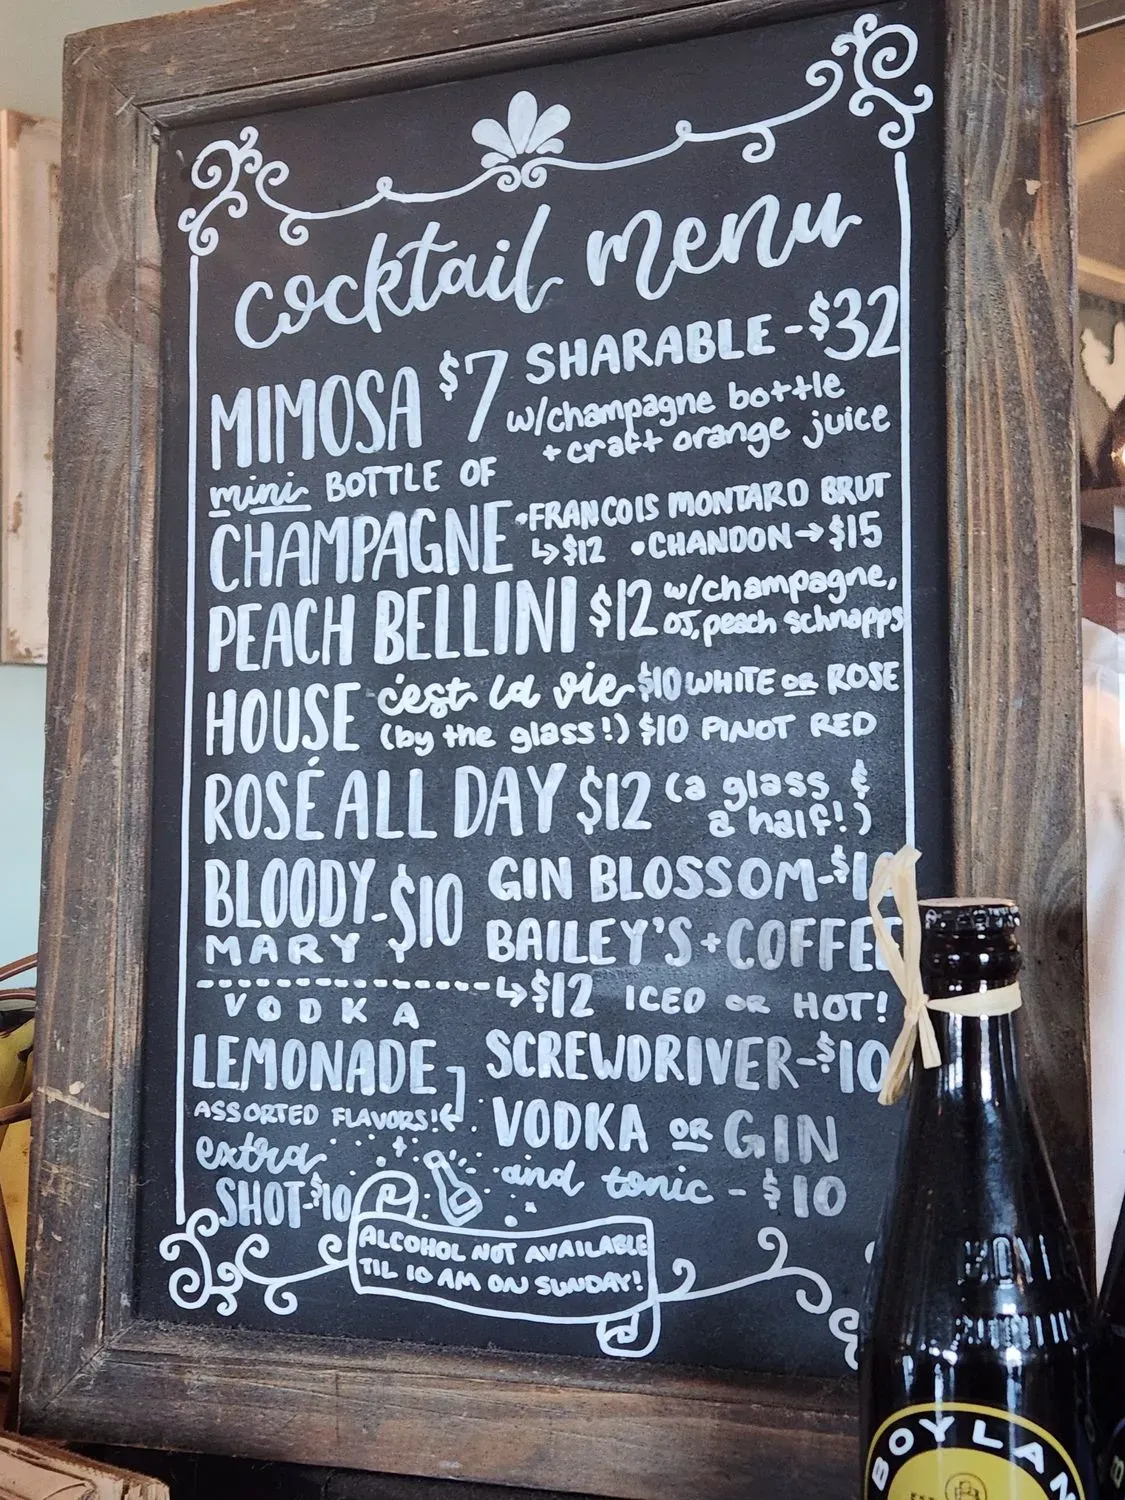 cocktail menu
MIMOSA $7 SHARABLE - $32
w/champagne bottle
+ craft orange juice
mini BOTTLE OF
CHAMPAGNE •FRANCOIS MONTARD BRUT
↳$12 •CHANDON→$15
PEACH BELLINI $12 w/champagne,
OJ, peach schnapps
HOUSE c'est la vie $10 WHITE OR ROSE
(by the glass!) $10 PINOT RED
ROSÉ ALL DAY $12 (a glass &
a half!)
BLOODY
MARY - $10
VODKA
LEMONADE
ASSORTED FLAVORS!
extra
SHOT-$10
GIN BLOSSOM-
BAILEY'S + COFFEE
↳$12 ICED OR HOT!
SCREWDRIVER-$10
VODKA OR GIN
and tonic - $10
ALCOHOL NOT AVAILABLE
TIL 10 AM ON SUNDAY!
BOYLAN